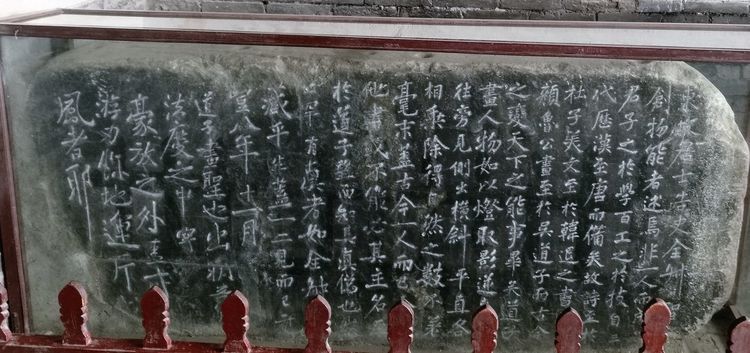 東坡居士書史全叔
創物能者述焉非一人而
君子之於學百工之於技自三
代歷漢至唐而備矣故詩至
杜子美文至於韓退之書
顏魯公畫至於吳道子而古今
之變天下之能事畢矣道子
畫人物如以燈取影逆
往旁見側出橫斜平直各
相乘除得自然之數不差
毫末蓋古今一人而已
他畫或不能必其主名
於道子望而知其真偽也
世罕有真者如全叔
藏平生蓋一二見而已元
豐八年十一月
道子畫聖也出新意
法度之中寄
豪放之外盖
游刃餘地運斤
風者耶